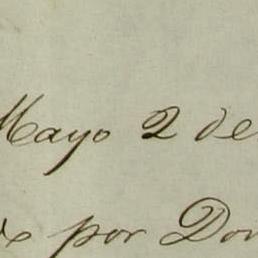 Mayo 2 de
por Don